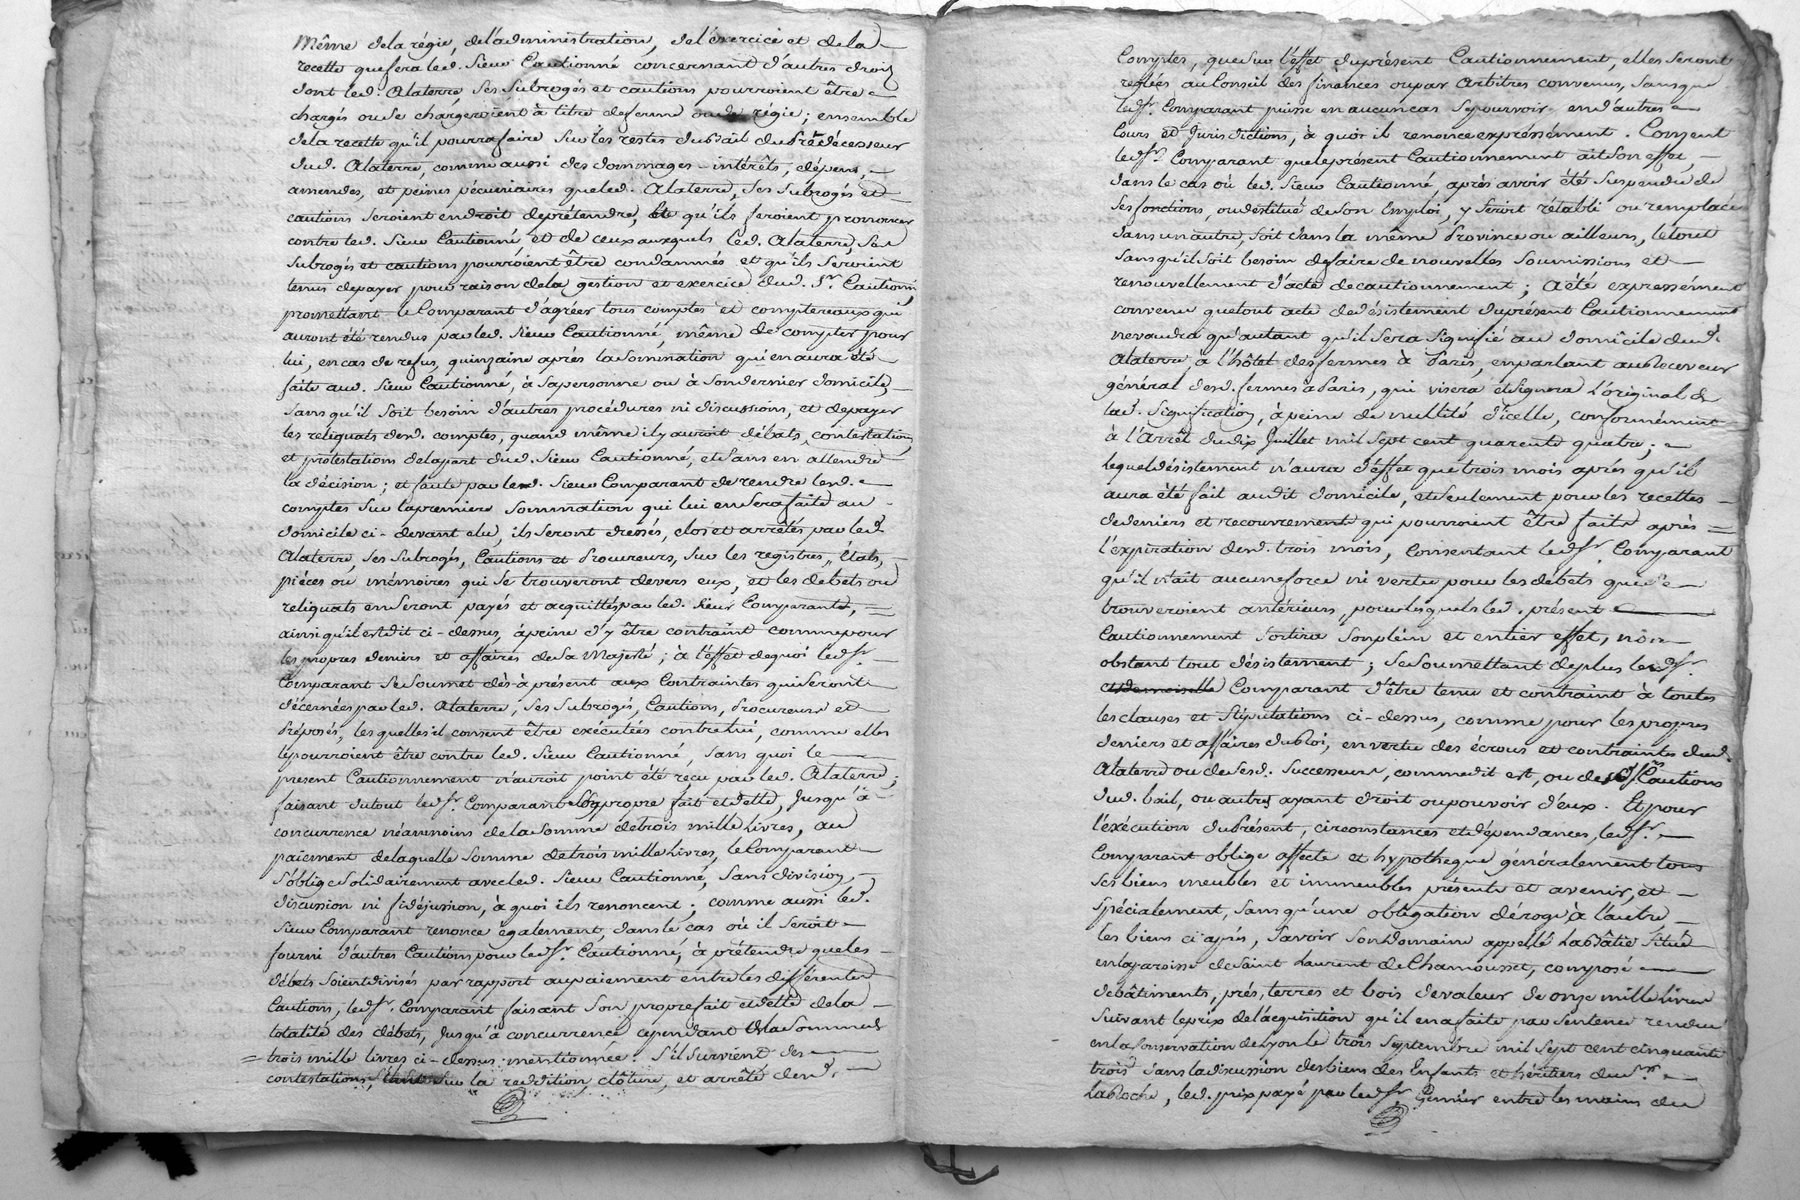 Même de la régie, de l'administration, de l'exercice et de la
recette que fera led. Sieur Cautionné concernant d'autres droits
dont led. Alaterre, ses subrogés et cautions pourroient être
chargés ou se chargeroient à titre de ferme ou de régie; ensemble
de la recette qu'il pourra faire sur les restes du bail du Prédécesseur
dud. Alaterre, comme aussi des dommages-intérêts, dépens,
amendes, et peines pécuniaires que led. Alaterre, ses subrogés et
cautions seroient en droit de prétendre, et qu'ils feroient prononcer
contre led. Sieur Cautionné et de ceux auxquels led. Alaterre, ses
subrogés et cautions pourroient être condamnés et qu'ils seroient
tenus de payer pour raison de la gestion et exercice dud. Sr. Cautionné,
promettant le Comparant d'agréer tous comptes et comptereaux qui
auront été rendus par led. Sieur Cautionné, même de compter pour
lui, en cas de refus, quinzaine après la sommation qui en aura été
faite aud. Sieur Cautionné, à sa personne ou à son dernier domicile,
sans qu'il soit besoin d'autres procédures ni discussions, et de payer
les reliquats desd. comptes, quand même il y auroit débats, contestations
et protestations de la part dud. Sieur Cautionné, et sans en attendre
la décision; et faute par led. Sieur Comparant de rendre lesd.
comptes sur la premiere sommation qui lui en sera faite au
domicile ci-devant elu, ils seront dressés, clos et arrêtés par led.
Alaterre, ses subrogés, Cautions et Procureurs, sur les registres, Etats,
piéces ou mémoires qui se trouveront devers eux, et les debets ou
reliquats en seront payés et acquittés par led. Sieur Comparant,
ainsi qu'il est dit ci-dessus, à peine d'y être contraint comme pour
les propres deniers et affaires de Sa Majesté; à l'effet de quoi led. Sr.
Comparant se soumet dès-à-présent aux Contraintes qui seront
décernées par led. Alaterre, ses subrogés, Cautions, Procureurs et
Préposés, lesquelles il consent être exécutées contre lui, comme elles
le pourroient être contre led. Sieur Cautionné, sans quoi le
présent Cautionnement n'auroit point été reçu par led. Alaterre;
faisant du tout led. Sr. Comparant son propre fait et dette, jusqu'à
concurrence néanmoins de la somme de trois mille livres, au
paiement de laquelle somme de trois mille livres, le Comparant
s'oblige solidairement avec led. Sieur Cautionné, sans division,
discussion ni fidéjussion, à quoi ils renoncent; comme aussi led.
Sieur Comparant renonce également, dans le cas où il seroit
fourni d'autres Cautions pour led. Sr. Cautionné, à prétendre que les
débets soient divisés par rapport au paiement entre les différentes
Cautions, led. Sr. Comparant faisant son propre fait et dette de la
totalité des débets, jusqu'à concurrence cependant de la somme de
trois mille livres ci-dessus mentionnée. S'il survient des
contestations, sur la reddition, clôture, et arrêté desd.
Comptes, que sur l'effet du présent Cautionnement, elles seront
reglées au Conseil des finances ou par Arbitres convenus, sans que
led. Sr. Comparant puisse en aucun cas se pourvoir en d'autres
Cours et Jurisdictions, à quoi il renonce expréssément. Consent
led. Sr. Comparant que le présent Cautionnement ait son effet,
dans le cas où led. Sieur Cautionné, après avoir été suspendu de
ses fonctions, ou destitué de son Emploi, y seroit rétabli ou remplacé
dans un autre, soit dans la même Province ou ailleurs, le tout
sans qu'il soit besoin de faire de nouvelles soumissions et
renouvellement d'acte de cautionnement; A été expressément
convenu que tout acte de désistement du présent Cautionnement
ne vaudra qu'autant qu'il sera signifié au domicile dud.
Alaterre, à l'hôtel des fermes à Paris, en parlant au Receveur
général desd. fermes à Paris, qui visera et signera l'original de
lad. signification, à peine de nullité d'icelle, conformément
à l'Arrêt du dix Juillet mil sept cent quarente quatre;
lequel désistement n'aura d'éffet que trois mois après qu'il
aura été fait audit domicile, et seulement pour les recettes
de deniers et recouvrements qui pourroient être faits après
l'expiration desd. trois mois, Consentant led. Sr. Comparant
qu'il n'ait aucune force ni vertu pour les débets qui se
trouveroient antérieurs, pour lesquels led. présent
Cautionnement sortira son plein et entier effet, non
obstant tout désistement; se soumettant de plus led. Sr.
Comparant d'être tenu et contraint à toutes
les clauses et stipulations ci-dessus, comme pour les propres
deniers et affaires du Roi, en vertu des écrous et contraintes dud.
Alaterre ou de sesd. successeurs, comme dit est, ou de sesd. Cautions
dud. bail, ou autres ayant droit ou pouvoir d'eux. Et pour
l'exécution du Présent, circonstances et dépendances, led. Sr.
Comparant oblige affecte et hypotheque généralement tous
ses biens meubles et immeubles présents et avenir, et
spécialement, sans qu'une obligation déroge à l'autre
les biens ci après, savoir son Domaine appellé La Bâtie situé
en la paroisse de Saint Laurent de Chamousset, composé
de bâtiments, prés, terres et bois de valeur de onze mille livres
suivant le prix de l'acquisition qu'il en a faite par sentence rendue
en la Conservation de Lyon le trois septembre mil sept cent cinquante
trois dans la discussion des biens des Enfants et héritiers du Sr.
LaRoche, led. prix payé par led. Sr. entre les mains du